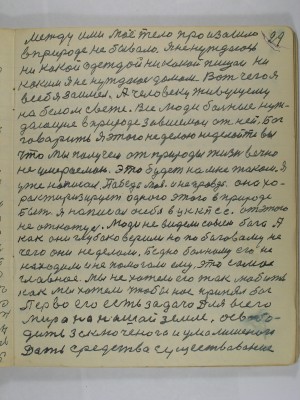 29
между ими Моё тело произошло
в природе не бывало. Я не нуждаюсь
ни какой одеждой никакой пищей ни
каким я не нуждаюсь домом. Вот чего я
в себя заимел. А человеку живущему
на белом свете. Все люди больные нуж-
дающие в природе зависимои от неё. Бог
говорить Я этого неделаю недели то вы
что мы получем от природы жизнь вечно
не умероемая. Это будет на мне таком. Я
уже написал Победа моя. она ха-
растиризирует одного этого в природе
быт. Я написал себя в от этого
не откажуся. Люди не видели совсем бога А
как они глубоко верили но по богову ни
чего они не делали. Бедно больному его не
находили и не помогали ему. Это самая
главная. Мы не хотели его так любить
как мы хотели чтобы нас принял Бог
Перво его есть задача Для всего
мира на нашей земле, освобо-
дить заключеного и умалишеного
Дать средства существования